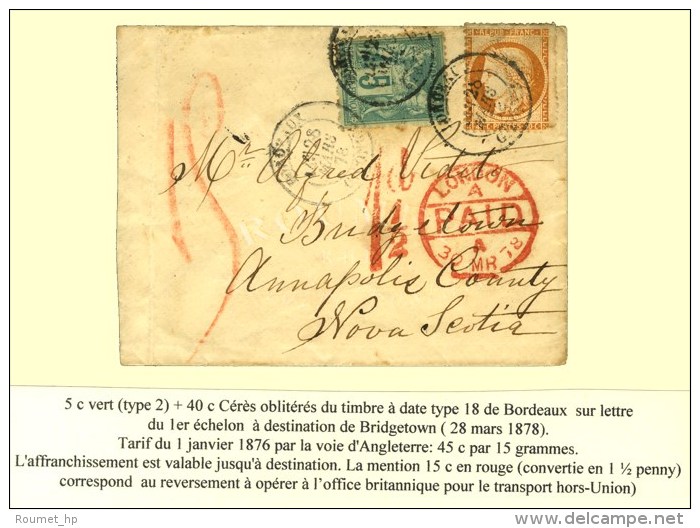 REPUB. FRANC.
5
BORDEAUX
28
MARS
78
LONDON
A
PAID
30 MR 78
1
1/2
Mr. Alfred Videto
Bridgetown
Annapolis County
Nova Scotia
5 c vert (type 2) + 40 c Cérès oblitérés du timbre à date type 18 de Bordeaux sur lettre
du 1er échelon à destination de Bridgetown ( 28 mars 1878).
Tarif du 1 janvier 1876 par la voie d'Angleterre: 45 c par 15 grammes.
L'affranchissement est valable jusqu'à destination. La mention 15 c en rouge (convertie en 1 ½ penny)
correspond au reversement à opérer à l'office britannique pour le transport hors-Union)
Roumet_hp
delcampe.net